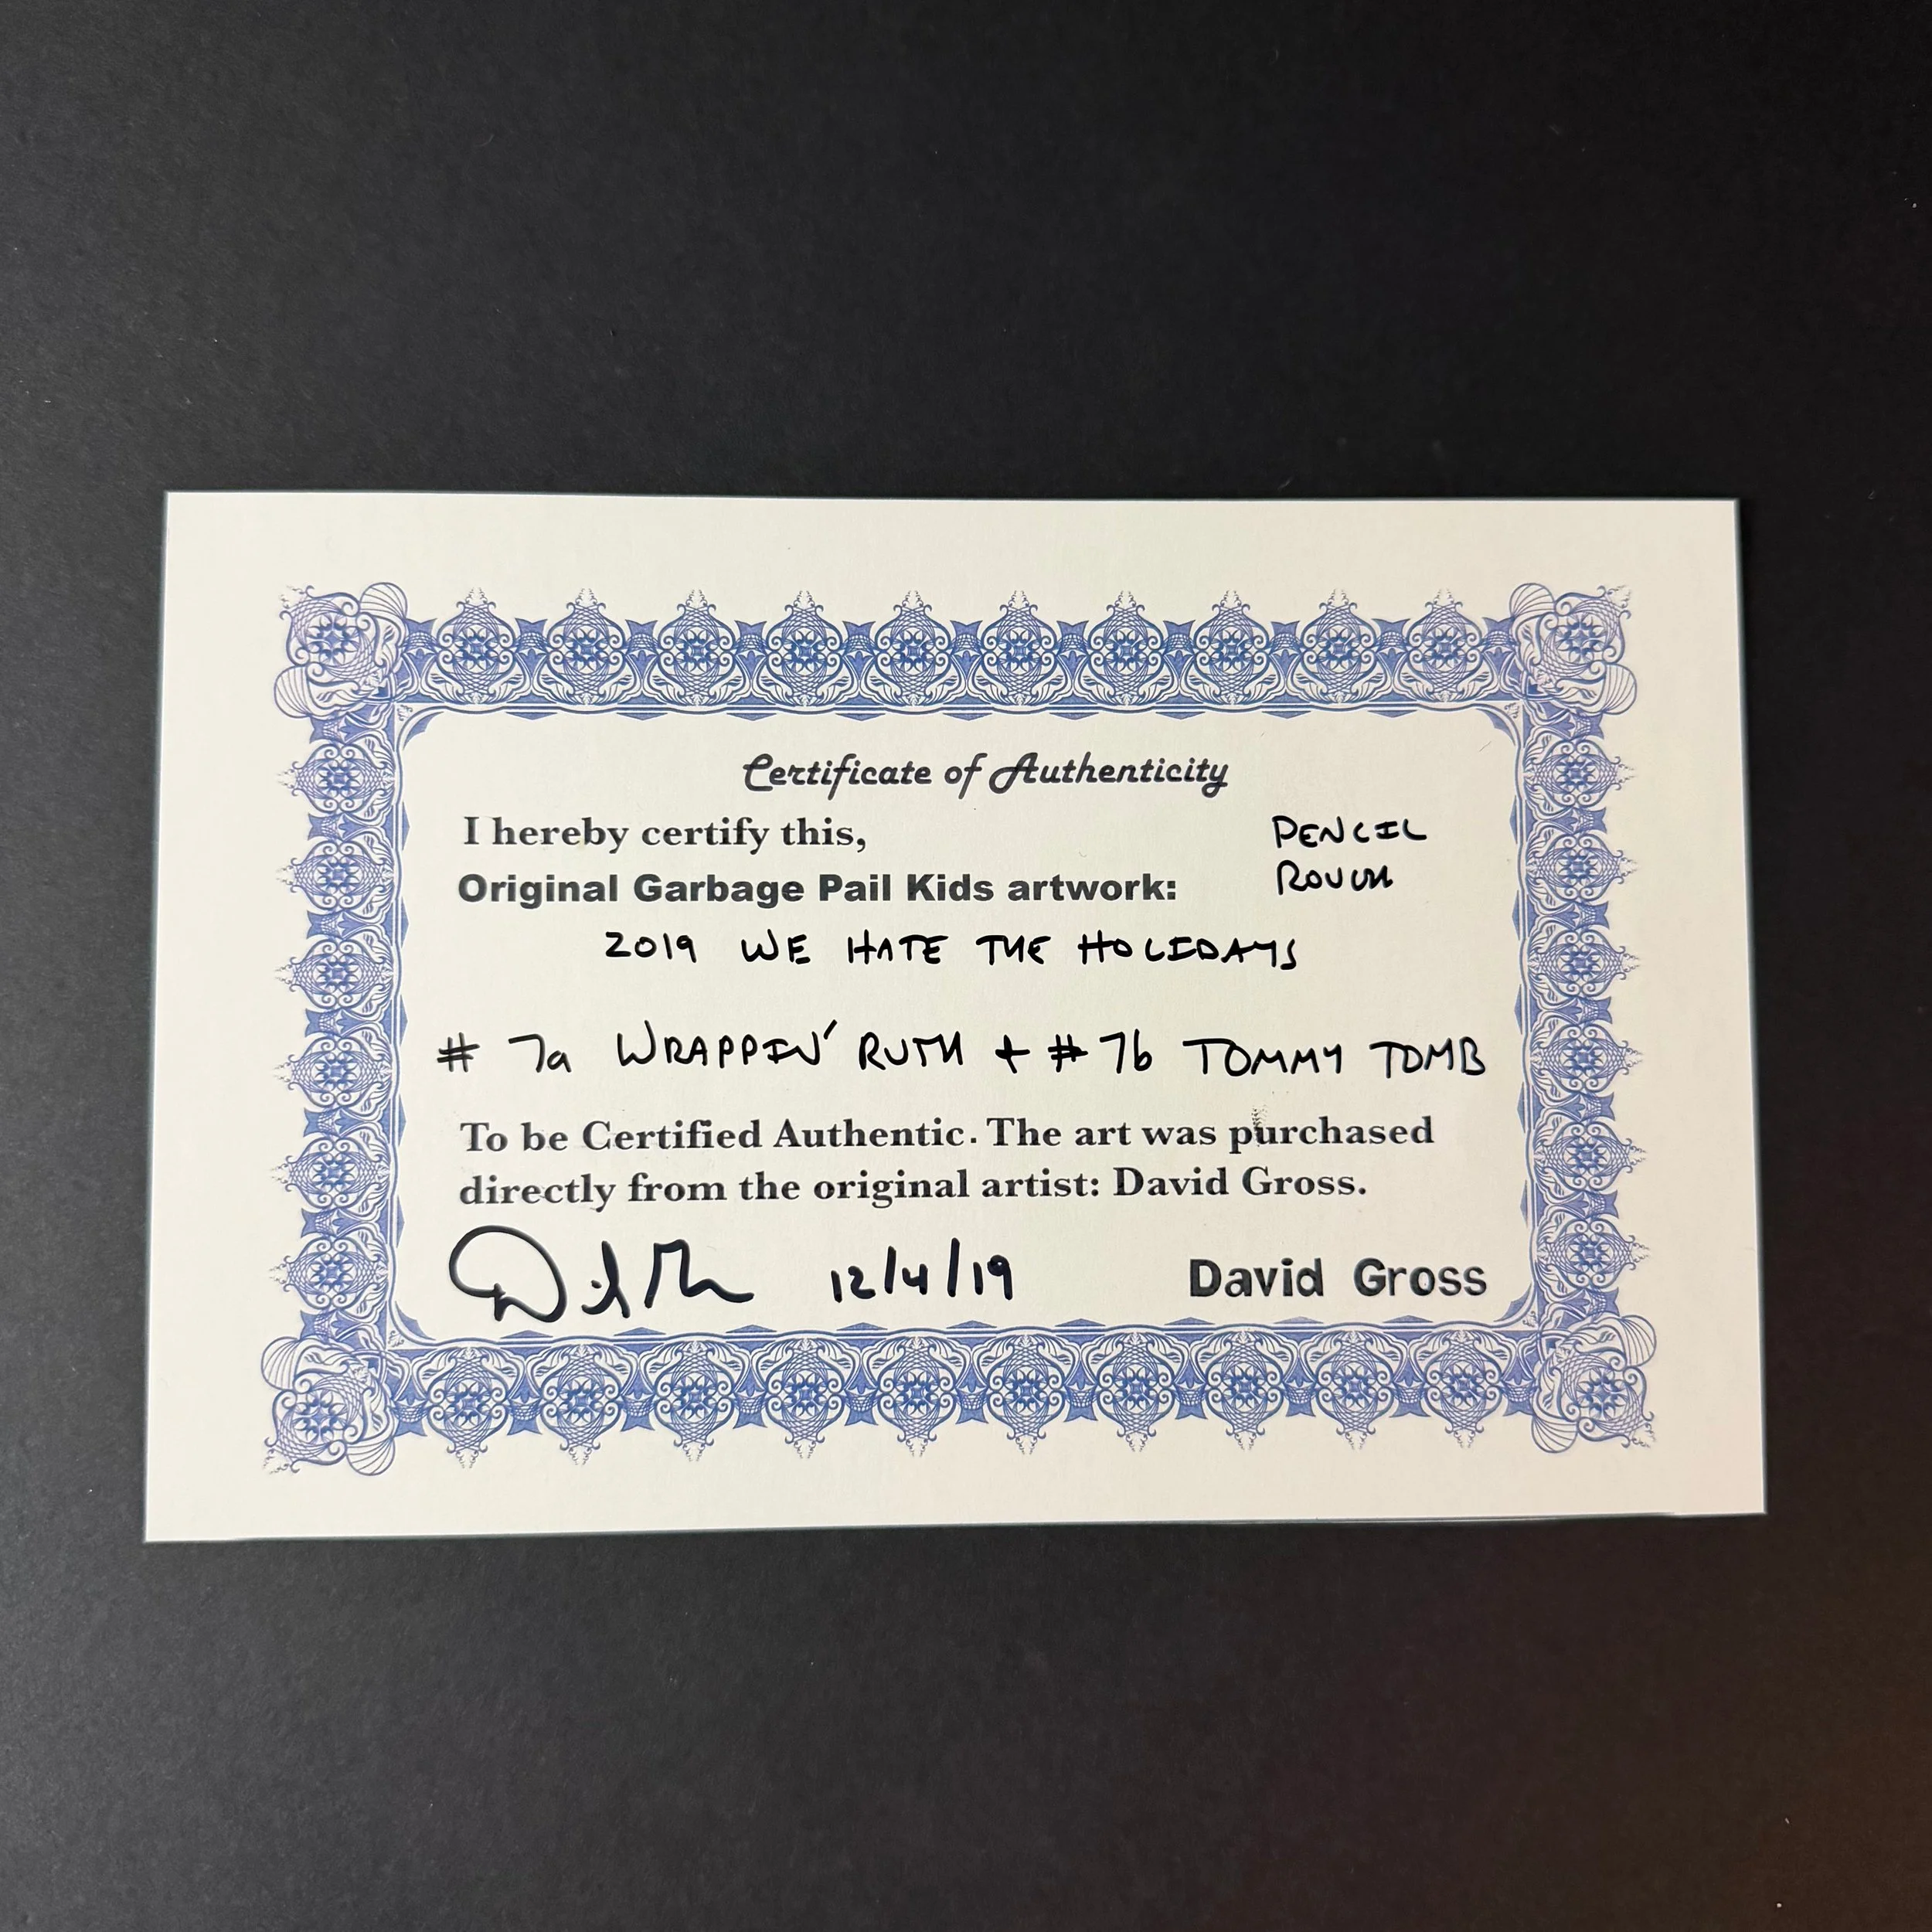 Certificate of Authenticity
I hereby certify this,
PENCIL
ROUGH
Original Garbage Pail Kids artwork:
2019 WE HATE THE HOLIDAYS
# 7a WRAPPIN' RUTH + # 7b TOMMY TOMB
To be Certified Authentic. The art was purchased
directly from the original artist: David Gross.
12/4/19 David Gross